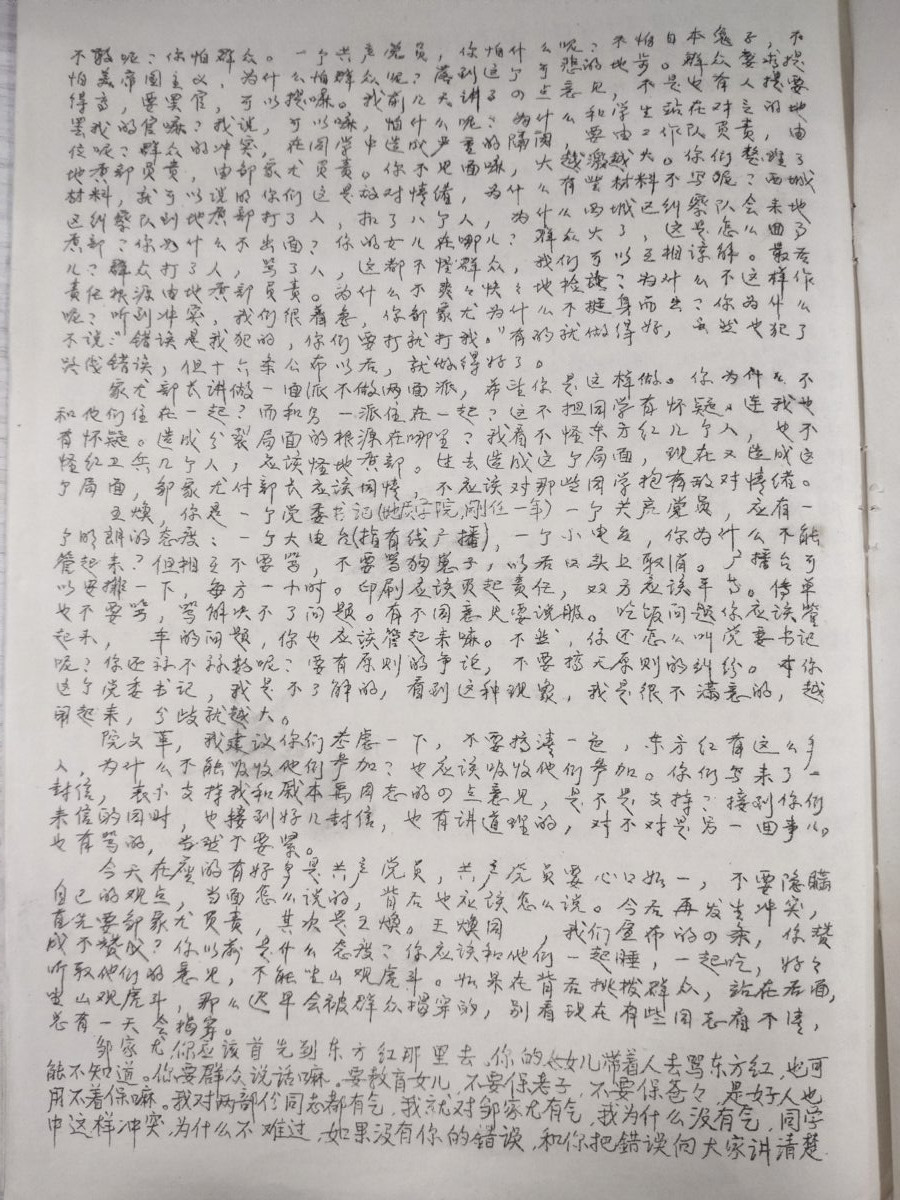 不敢呢？你怕群众。一个共产党员，你怕什么呢？不怕日本鬼子，不
怕美帝国主义，为什么怕群众呢？落到这个可悲的地步。群众要求提
得高，要罢官，可以提嘛。我前几天讲了の点意见，不是也有人提要
罢我的官嘛？我说，可以嘛，怕什么呢？为什么和学生站在对立的地
位呢？群众的冲突，在同学中造成严重的隔阂，要由工作队负责，由
地质部负责，由邹家尤负责。你不见面嘛，火越激越大。你们整理了
材料，我可以说的你们这是敌对情绪，为什么有些材料不写呢？西城
区纠察队到地质部打了人，扣了八个人，为什么西城区纠察队会来地
质部？你为什么不出面？你的女儿在哪儿？群众火了，这是怎么回事
儿？群众打了人，骂了人，这都不怪群众，我们可以互相谅解。最后
责任根源由地质部负责。为什么不爽々快々地检讨？为什么不这样作
呢？听到冲突，我们很着急，你邹家尤为什么不挺身而出？你为什么
不说：“错误是我犯的，你们要打就打我。”有的就做得好，虽然也犯了
路线错误，但十六条公布以后，就做得好了。
家尤部长讲做一面派不做两面派，希望你是这样做。你为什么不
和他们住在一起？而和另一派住在一起？这不担同学有怀疑，连我也
有怀疑。造成分裂局面的根源在哪里？我看不怪东方红几个人，也不
怪红卫兵几个人，应该怪地质部。过去造成这个局面，现在又造成这
个局面，邹家尤付部长应该同情，不应该对那些同学抱有敌对情绪。
王焕，你是一个党委书记(地质学院，刚任一年)一个共产党员，应有一
个明朗的态度：一个大电台(指有线广播)，一个小电台，你为什么不能
管起来？但相互不要骂，不要骂狗崽子，以后口头上取消。广播台可
以安排一下，每方一小时。印刷应该负起责任，双方应该平等。传单
也不要骂，骂解决不了问题。有不同意见要说服。吃饭问题你应该管
起来，车的问题，你也应该管起来嘛。不然，你还怎么叫党委书记
呢？你还称不称教呢？要有原则的争论，不要搞无原则的纠纷。本你
这个党委书记，我是不了解的，看到这种现象，我是很不满意的，越
闹起来，分歧就越大。
院文革，我建议你们考虑一下，不要搞清一色，东方红有这么多
人，为什么不能吸收他们参加？也应该吸收他们参加。你们写来了一
封信，表示支持我和戚本禹同志的の点意见，是不是支持？接到你们
来信的同时，也接到好几封信，也有讲道理的，对不对是另一回事儿。
也有骂的，当然不要紧。
今天在座的有好多是共产党员，共产党员要心口如一，不要隐瞒
自己的观点，当面怎么说的，背后也应该怎么说。今后再发生冲突，
首先要邹家尤负责，其次是王焕。王焕同，我们宣布的の条，你赞
成不赞成？你以前是什么态度？你应该和他们一起睡，一起吃，好々
听取他们的意见，不能坐山观虎斗。如果在背后挑拨群众，站在后面，
坐山观虎斗，那么迟早会被群众揭穿的，别看现在有些同志看不清，
总有一天会揭穿。
邹家尤，你应该首先到东方红那里去。你的女儿带着人去骂东方红，也可
能不知道。你要群众说话嘛。要教育女儿，不要保老子，不要保爸々，是好人也
用不着保嘛。我对两部份同志都有气，我就对邹家尤有气，我为什么没有气，同学
中这样冲突，为什么不难过，如果没有你的错误，和你把错误向大家讲清楚